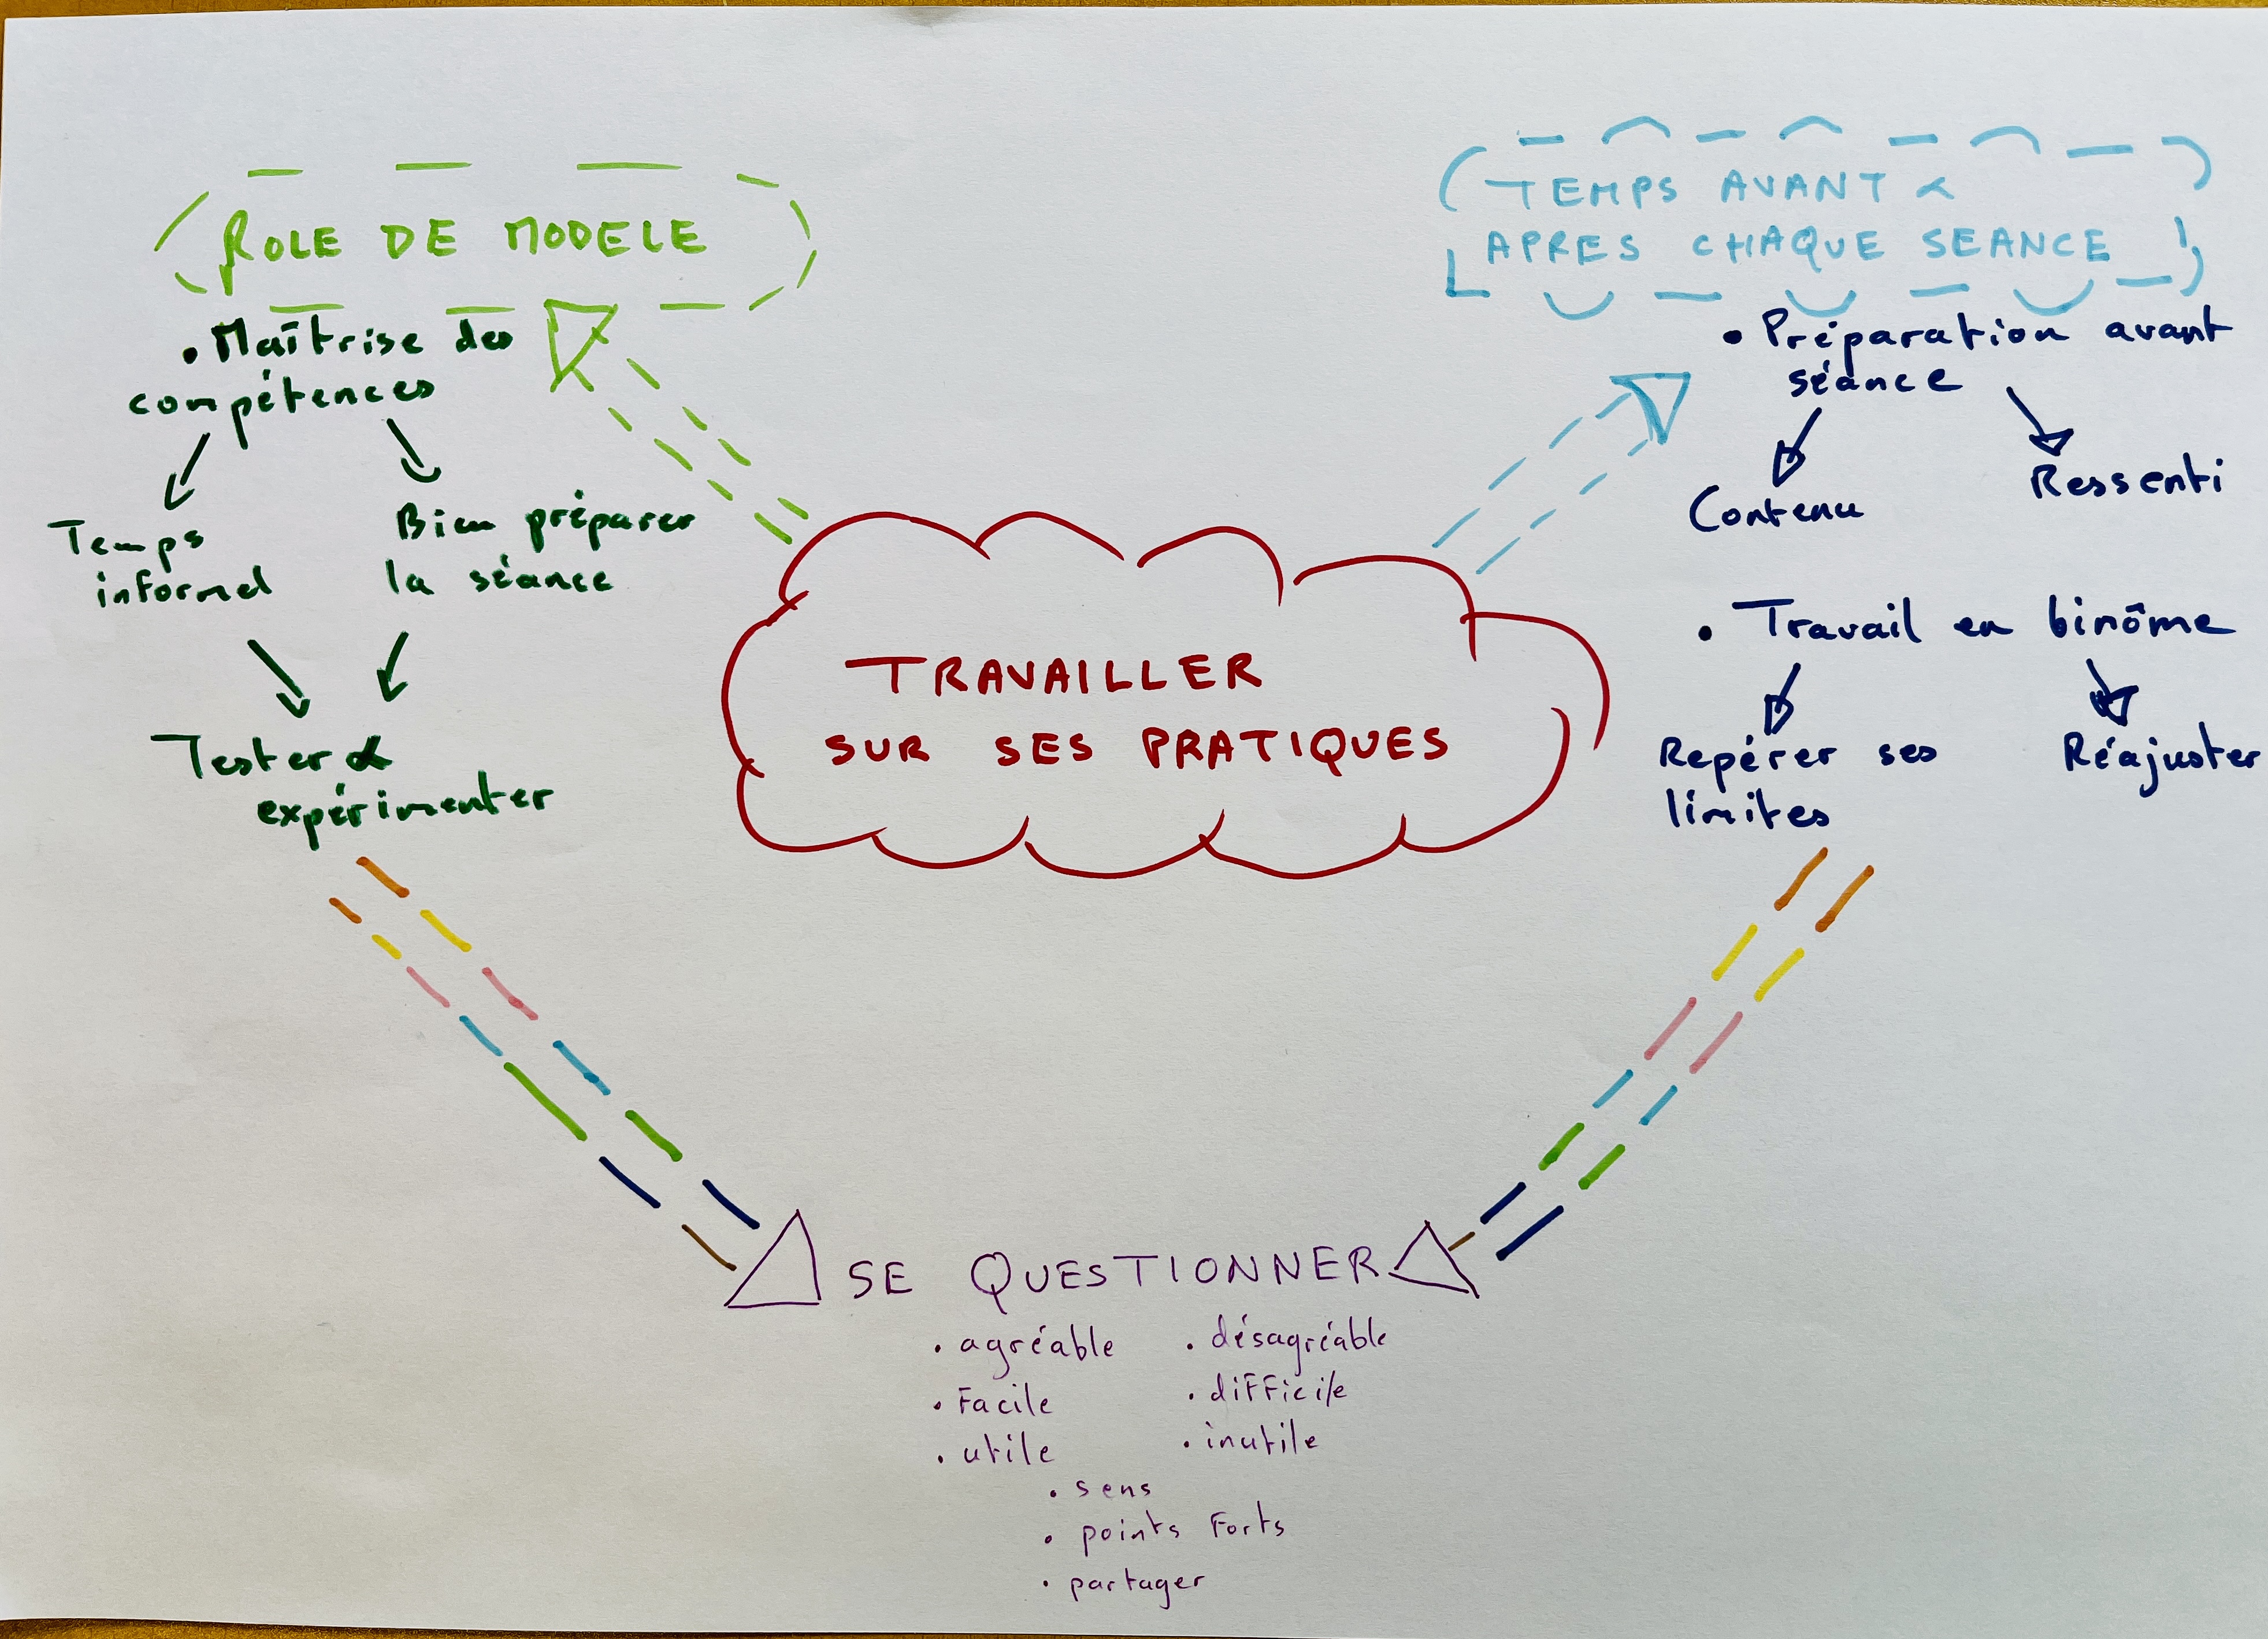 ROLE DE MODELE
• Maîtrise des
compétences
Temps
informel
Bien préparer
la séance
Tester &
expérimenter
TEMPS AVANT &
APRES CHAQUE SEANCE
• Préparation avant
séance
Contenu
Ressenti
• Travail en binôme
Repérer ses
limites
Réajuster
TRAVAILLER
SUR SES PRATIQUES
SE QUESTIONNER
• agréable
• Facile
• utile
• désagréable
• difficile
• inutile
• sens
• points Forts
• partager